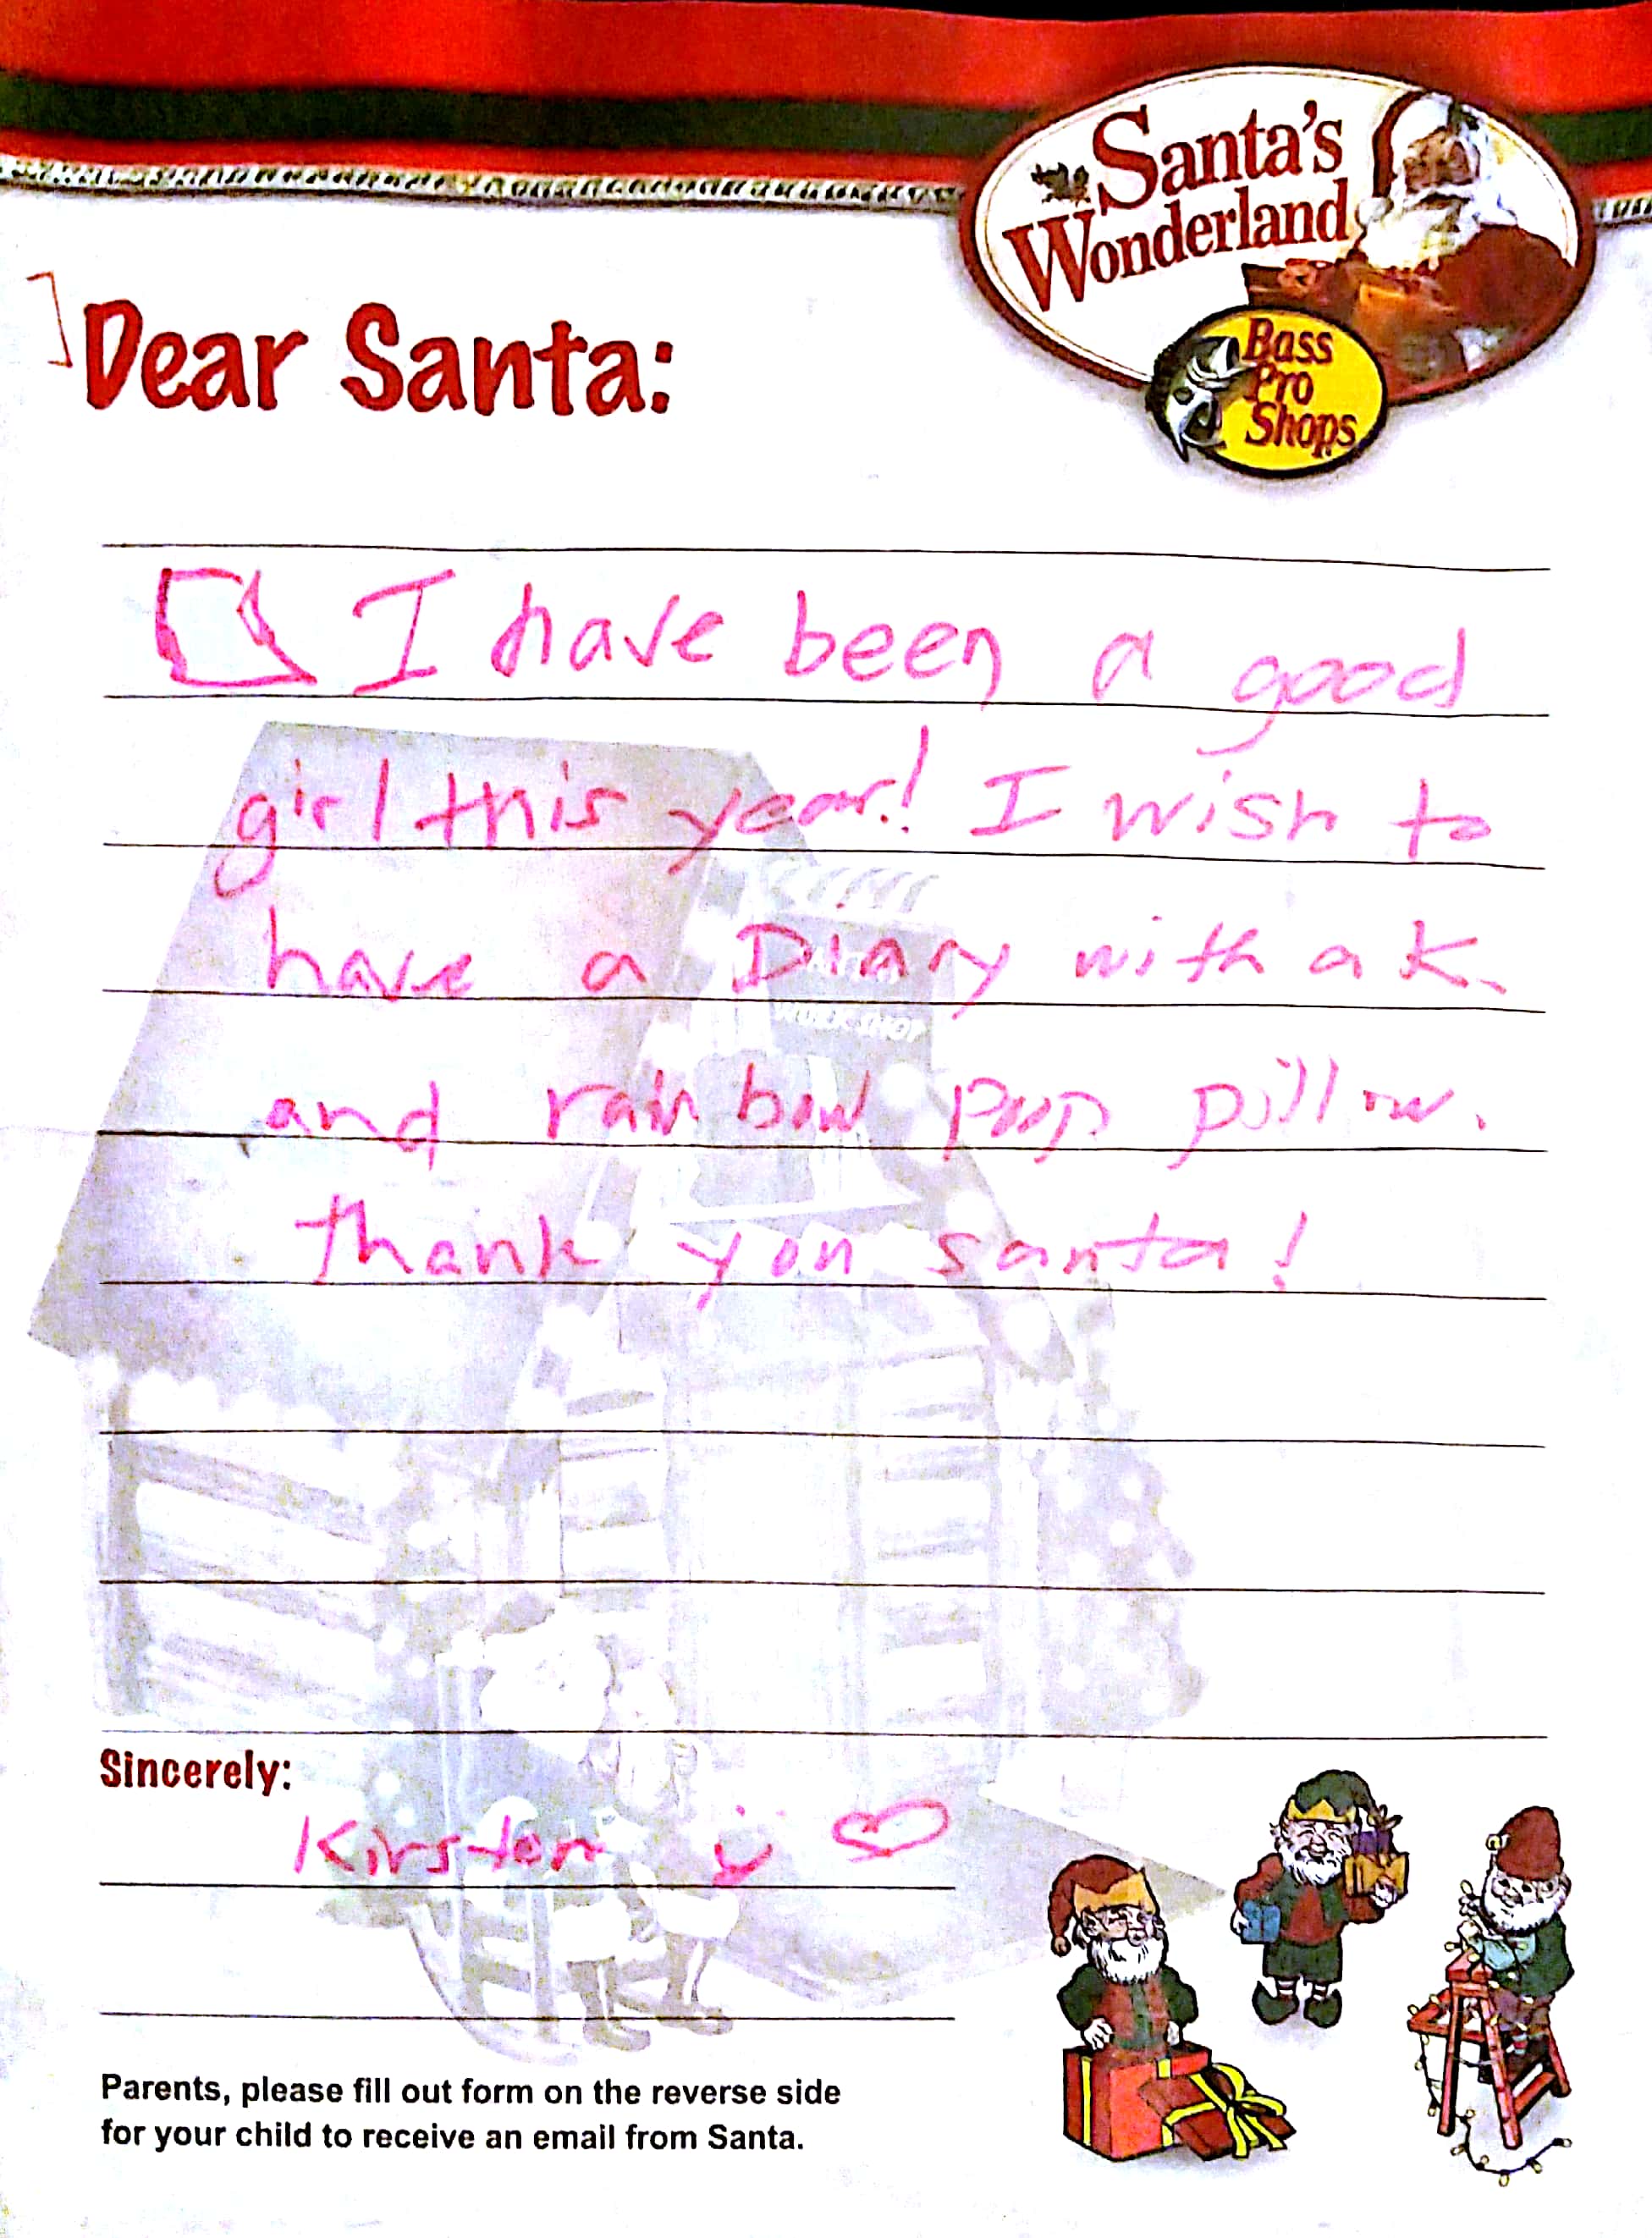 Santa's
Wonderland
Bass
Pro
Shops
Dear Santa:
I have been a good
girl this year! I wish to
have a Diary with a K.
and rainbow poop pillow.
thank you santa!
WORKSHOP
Sincerely:
Kirsten
Parents, please fill out form on the reverse side
for your child to receive an email from Santa.